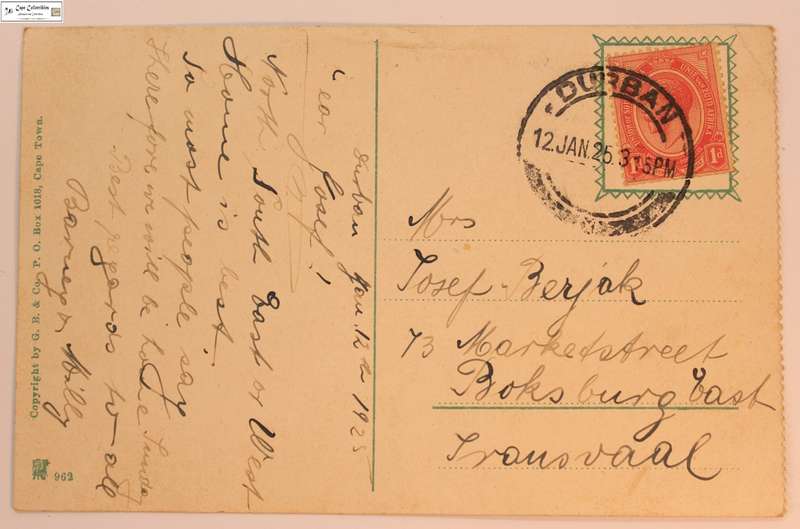 Cape Collectibles
Durban Jan. 12th 1925
Dear Josef!
North, South East or West
Home is best
So most people say
Therefore we will be home Sunday
Best regards to all
Barney & Milly
Copyright by G. B. & Co. P. O. Box 1018, Cape Town.
962
DURBAN
12.JAN.25.3 15PM
UNION OF SOUTH AFRICA
1d
Mrs
Josef Berjak
73 Marketstreet
Boksburg East
Transvaal